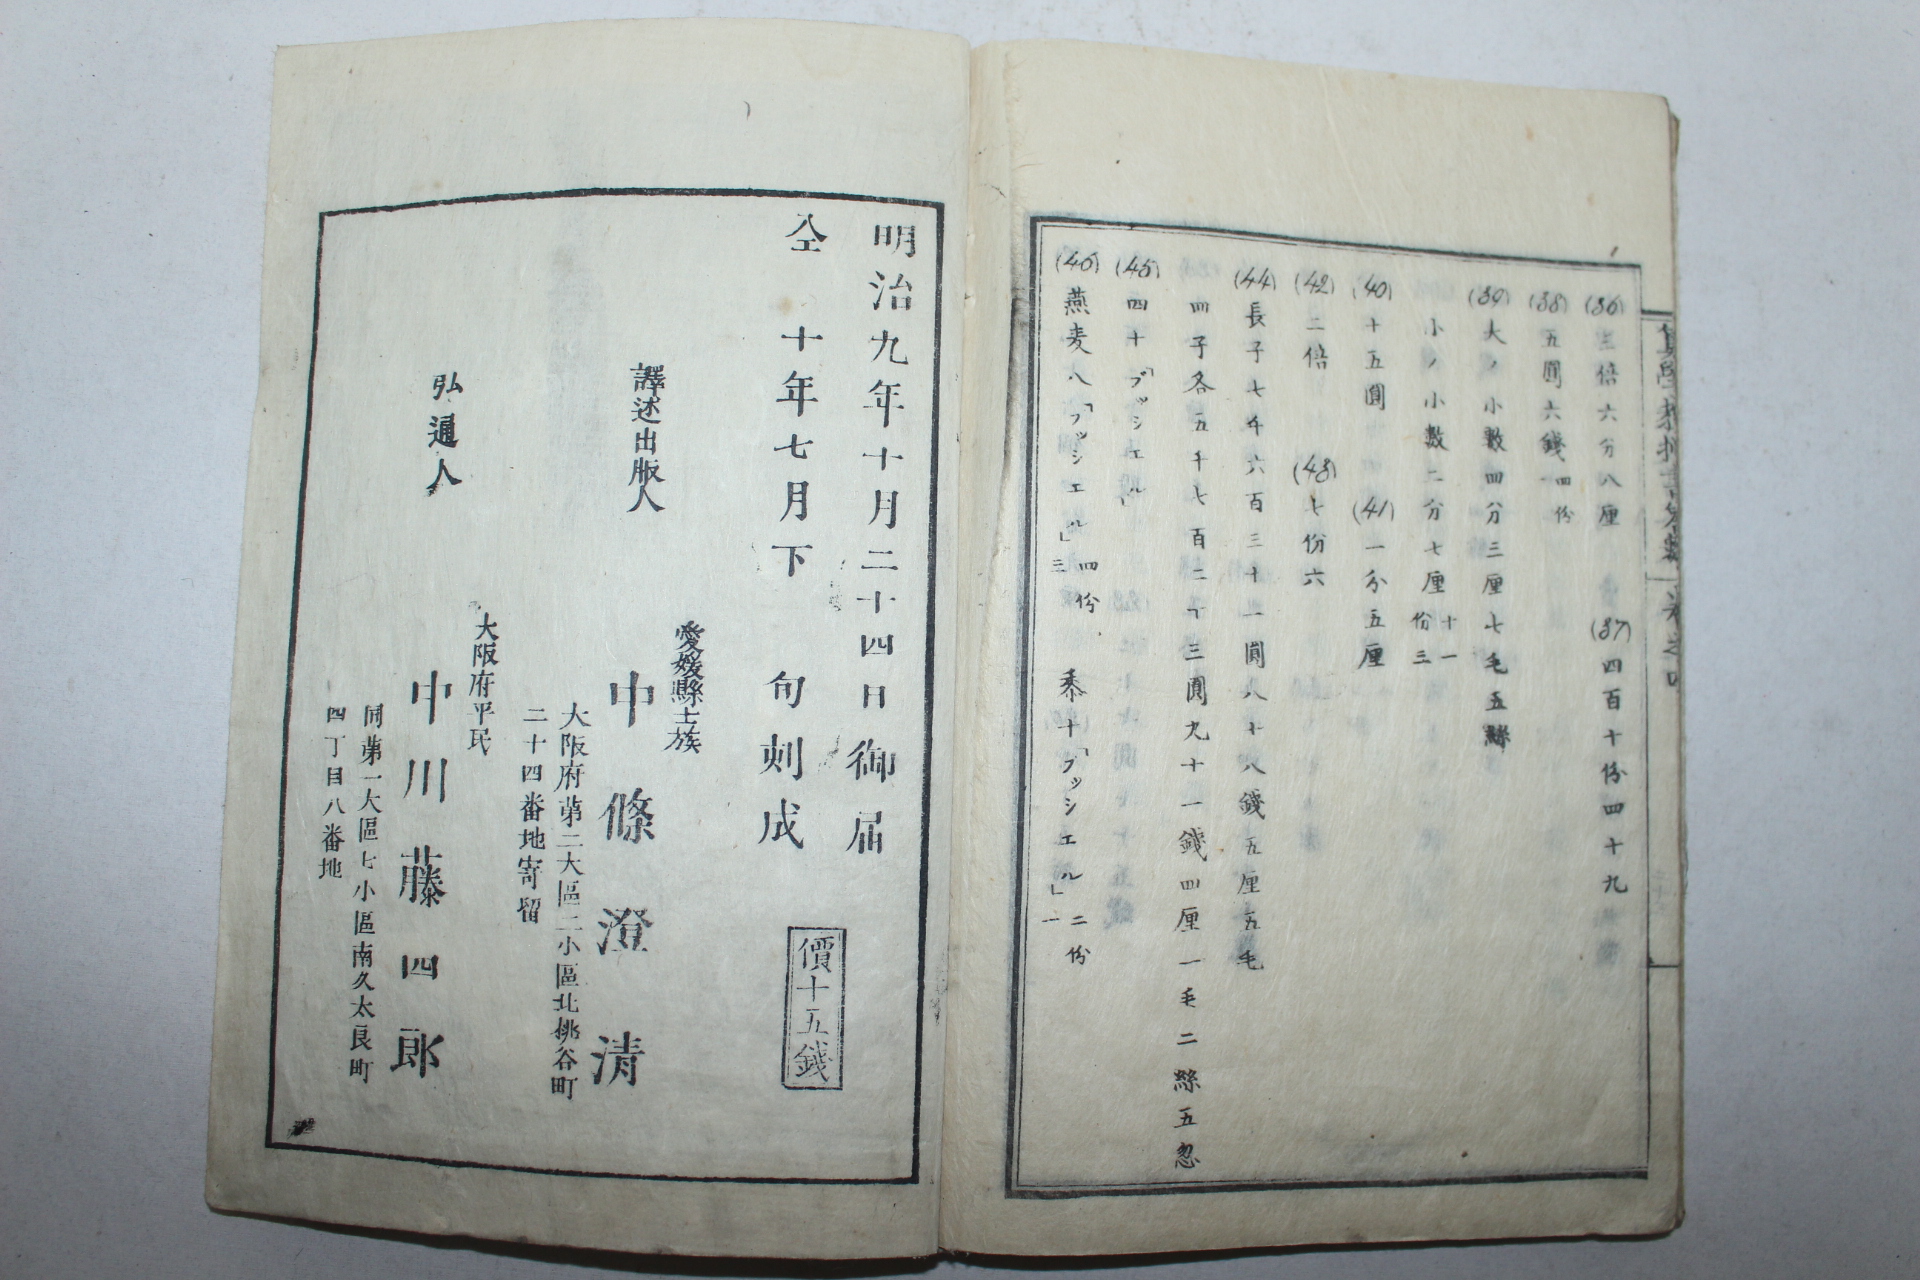 (36)三倍六分八厘
(37)四百十份四十九
(38)五圓六錢一四份
(39)大ノ小數四分三厘七毛五絲
小ノ小數二分七厘十一份三
(40)十五圓
(41)一分五厘
(42)二倍
(43)七份六
(44)長子七千六百三十一圓八十八錢五厘五毛
四子各五千七百二十三圓九十一錢四厘一毛二絲五忽
(45)四十「ブッシェル」
(46)燕麦八「ブッシェル」四份三
黍十「ブッシェル」二份一
明治九年十月二十四日御届
仝十年七月下旬刻成
價十五錢
譯述出版人
愛媛縣士族
中條澄清
大阪府苐二大區二小區北桃谷町
二十四番地寄留
弘通人
大阪府平民
中川藤四郎
同苐一大區七小區南久太良町
四丁目八番地